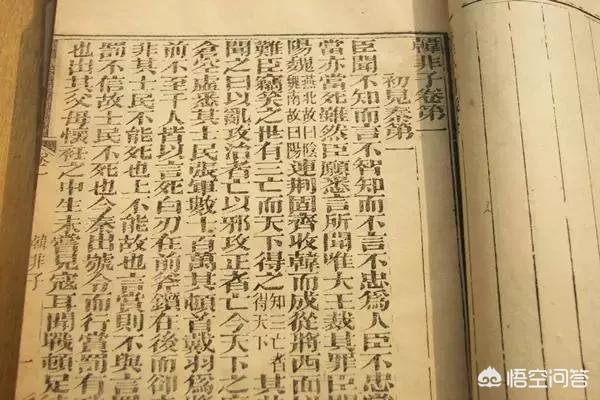 韓非子卷第一
初見秦第
臣聞不知而言不智知而不言不忠爲人臣不忠
當亦當死雖然臣願悉言所聞唯大王裁其罪臣聞
陽魏燕北故曰陰魏南故曰陽連荆固齊收韓而成從將西面
難臣竊笑之世有三亡而天下得之知三亡者得天下其
聞之曰以亂攻治者亡以邪攻正者亡今天下之
倉空虛悉其士民張軍數十百萬其頓首戴羽爲
前不至千人皆以言死白刃在前斧鑕在後而卻
非其士民不能死也上不能故也言賞則不與言
罰不信故士民不死也今秦出號令而行賞罰有
也出其父母懷衽之中生未嘗見寇耳聞戰頓足
韓非子
悟空问答